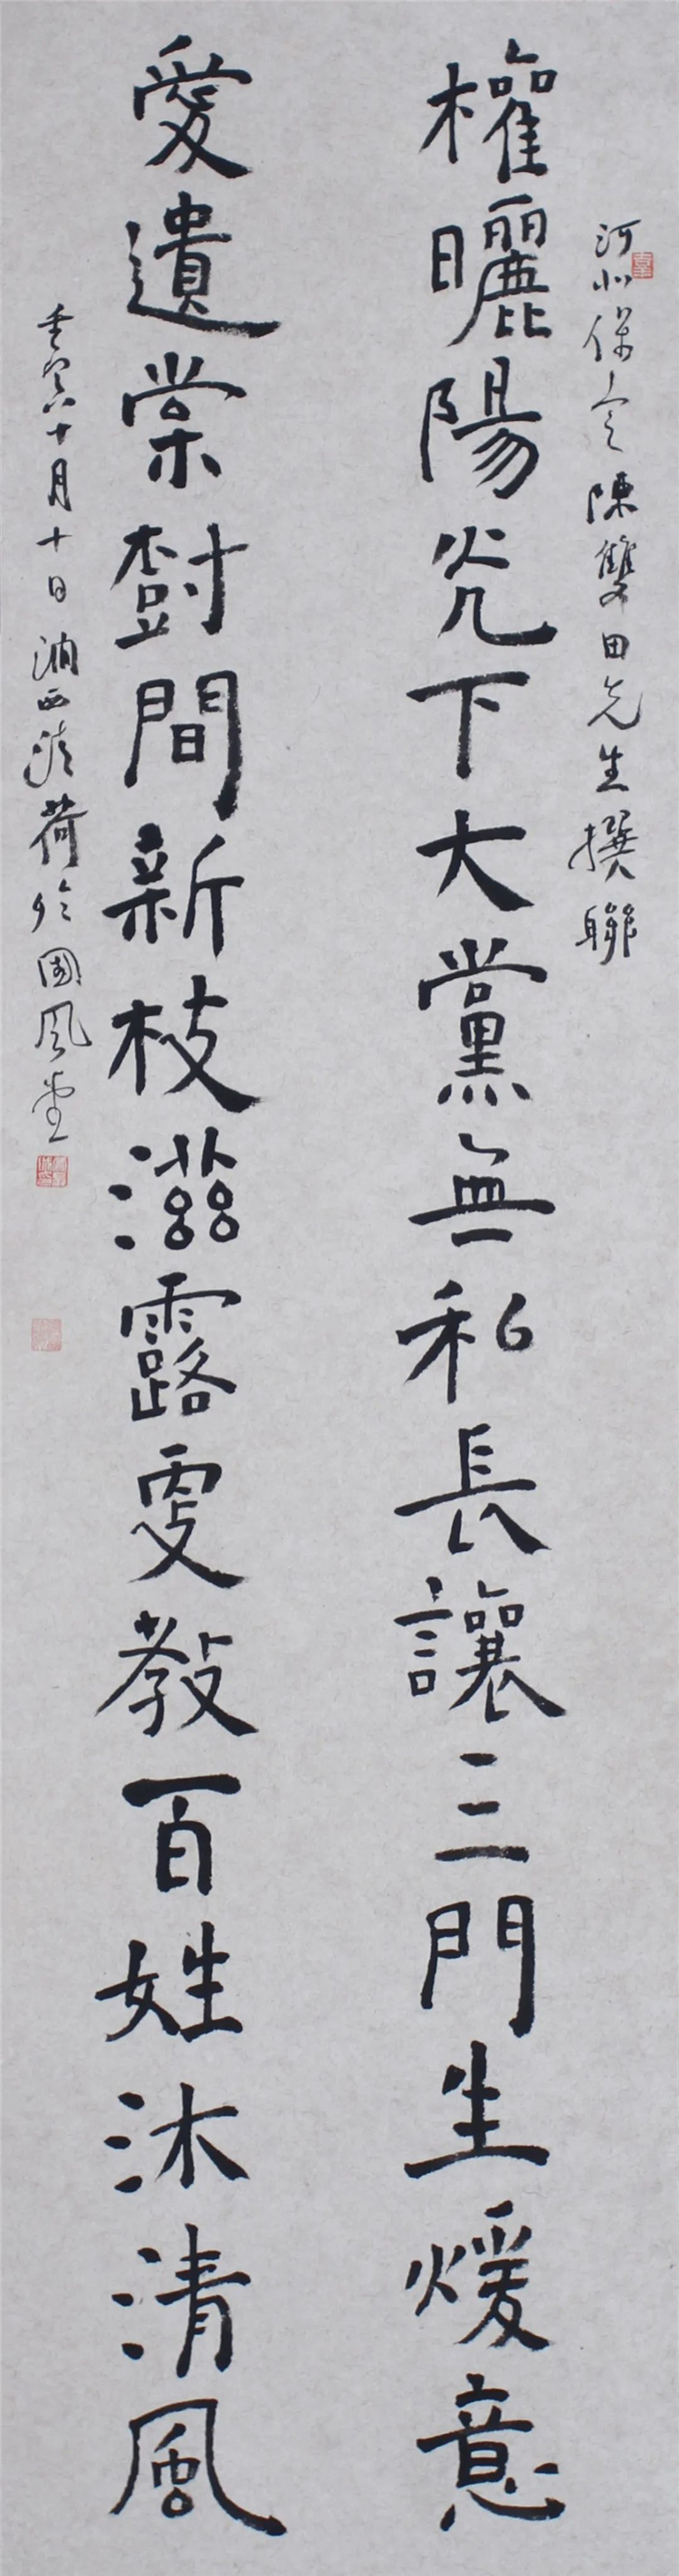 河北保定陳雙田先生撰聯
權曬陽光下大黨無私長讓三門生煖意
愛遺棠樹間新枝滋露更教百姓沐清風
壬寅十月十日西荷於國風堂